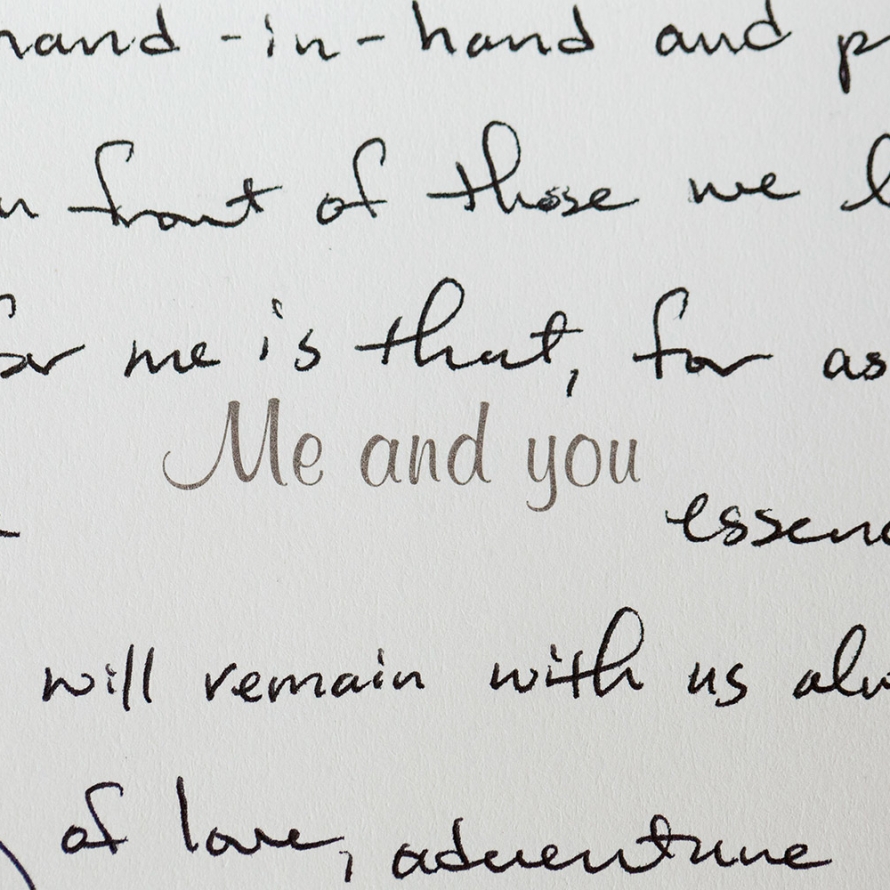 hand-in-hand and p
front of those we l
for me is that, for as
Me and you
essenc
will remain with us alw
of love, adventure